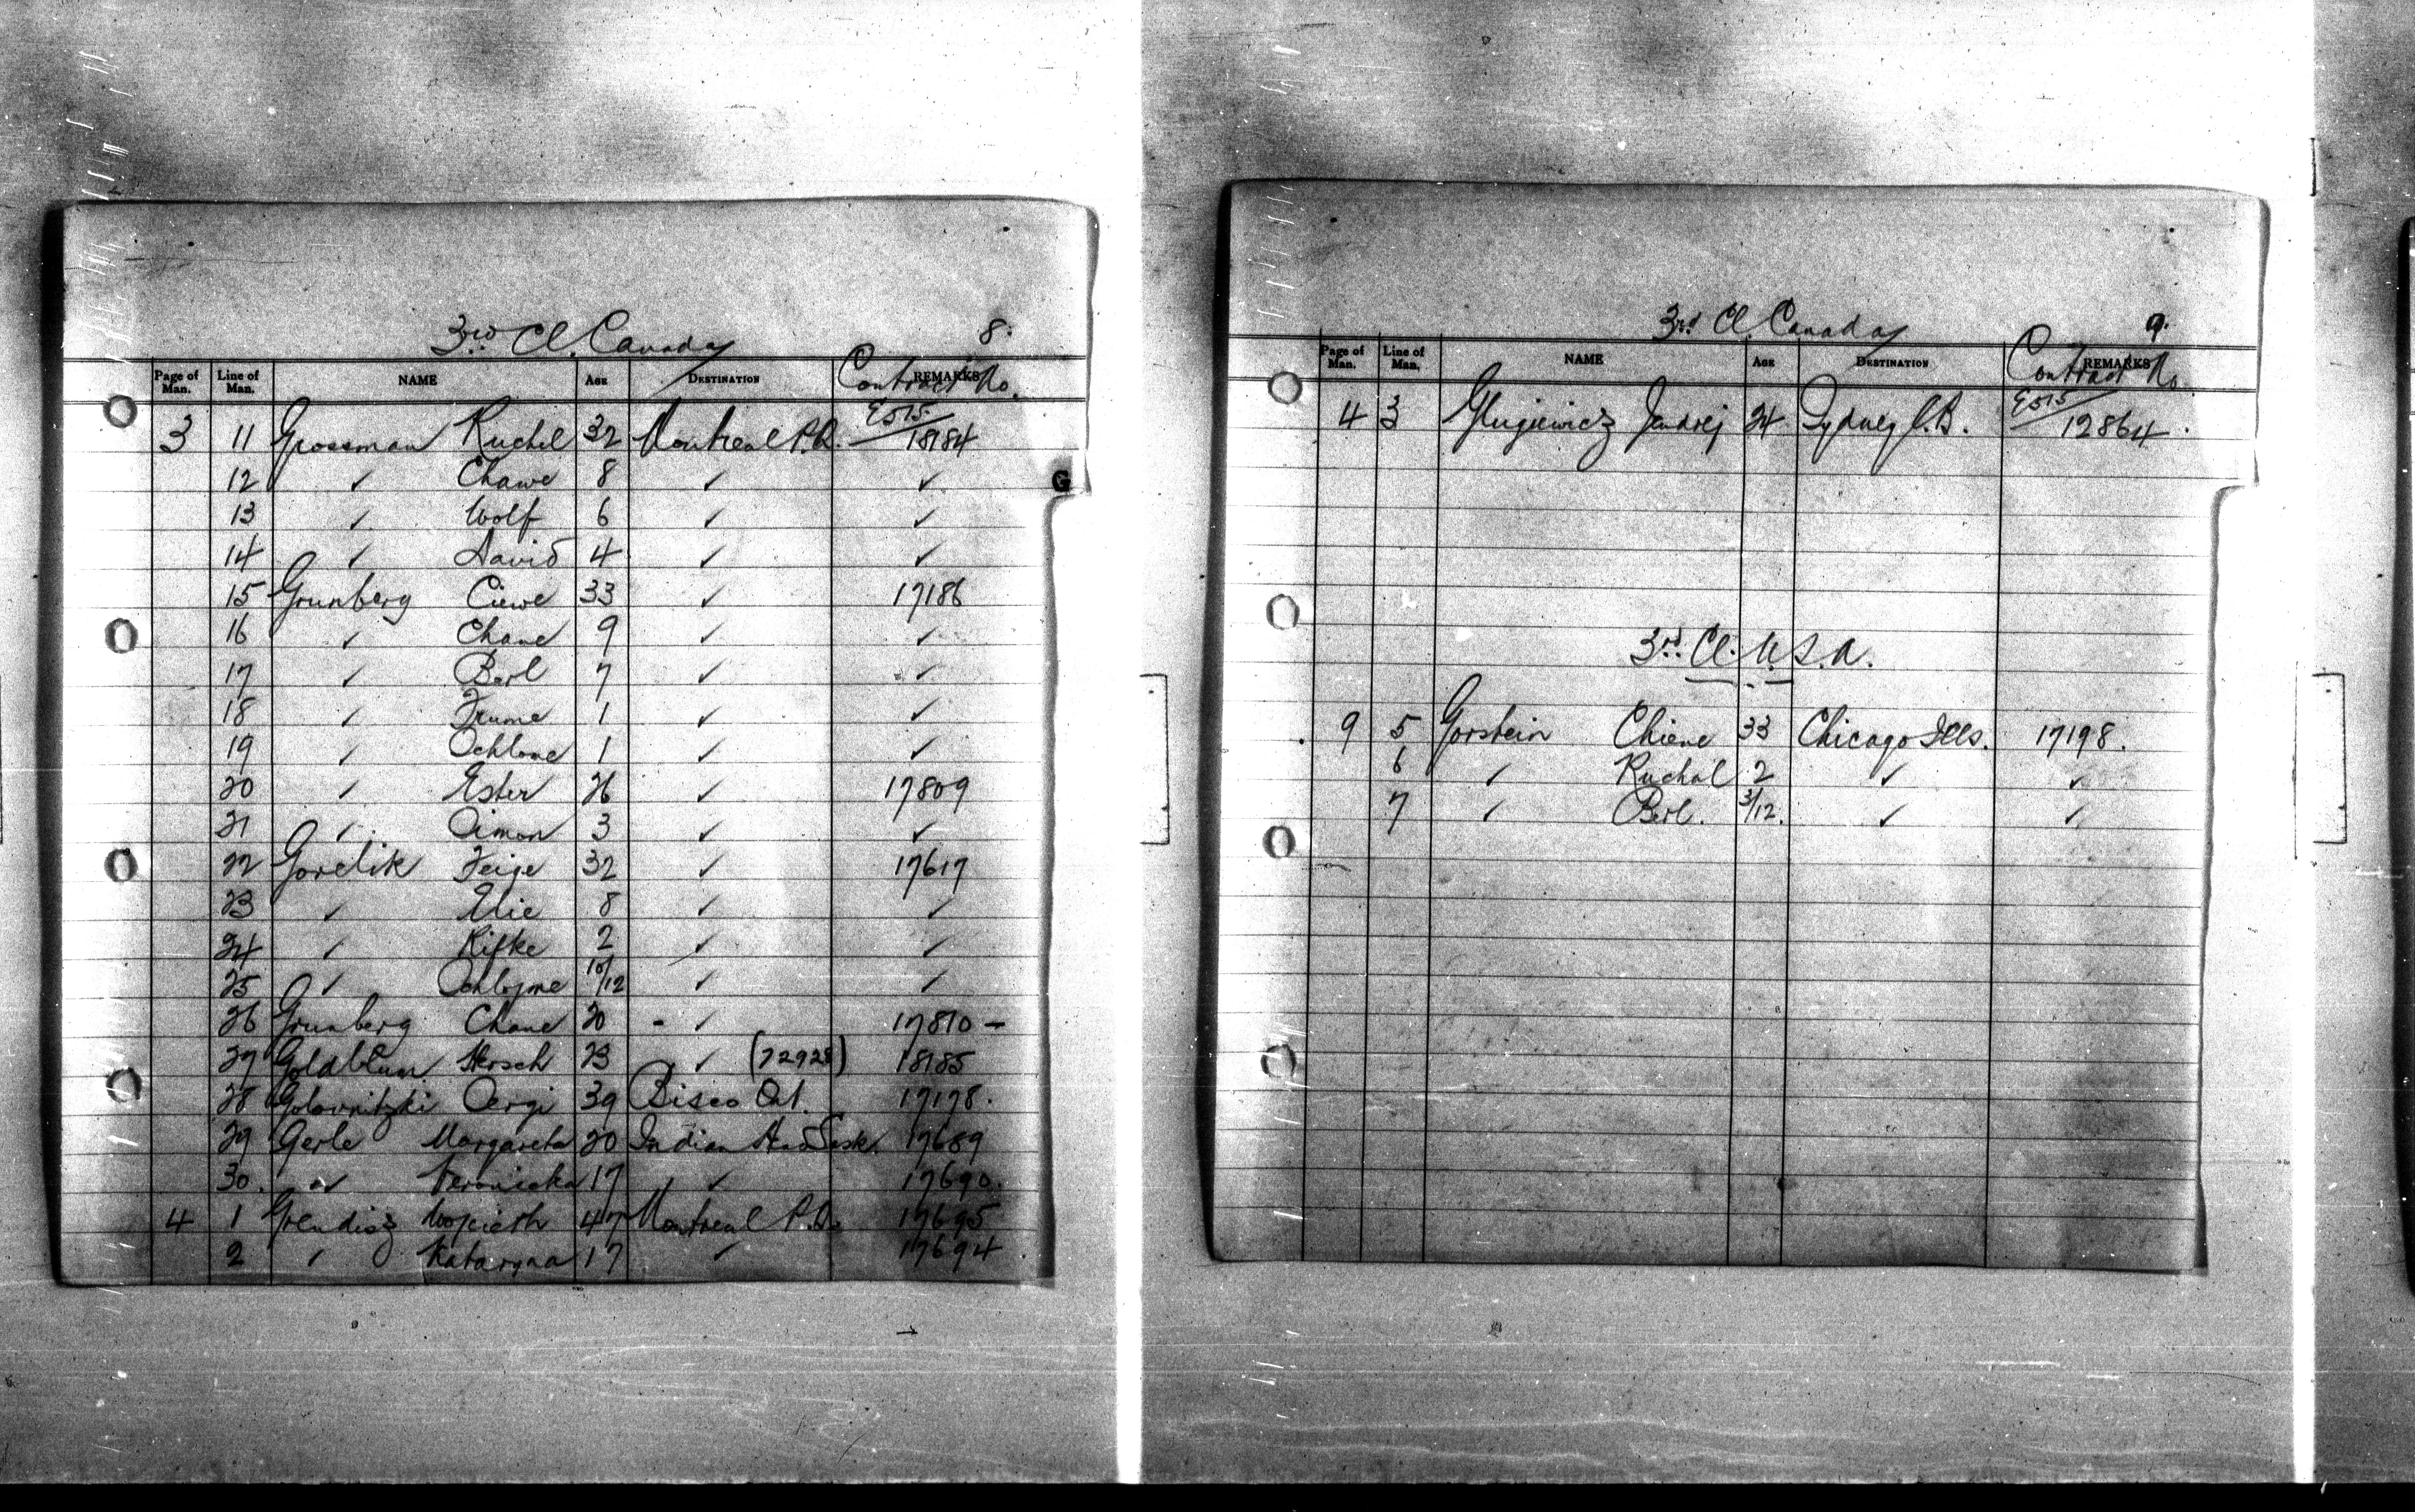 3rd Cl. Canada 8.
Page of Man. Line of Man. NAME AGE DESTINATION REMARKS Contract No.
3 11 Grossman Ruchel 32 Montreal P.Q. E515/18184
12 ✓ Chawe 8 ✓ ✓
13 ✓ Wolf 6 ✓ ✓
14 ✓ David 4 ✓ ✓
15 Grunberg Ciewe 33 ✓ 17186
16 ✓ Chane 9 ✓ ✓
17 ✓ Berl 7 ✓ ✓
18 ✓ Frume 1 ✓ ✓
19 ✓ Schlome 1 ✓ ✓
20 ✓ Ester 26 ✓ 17809
21 ✓ Simon 3 ✓ ✓
22 Gorelik Feige 32 ✓ 17617
23 ✓ Elie 8 ✓ ✓
24 ✓ Rifke 2 ✓ ✓
25 ✓ Schlojme 10/12 ✓ ✓
26 Grunberg Chane 20 - ✓ 17810 -
27 Goldblum Hersch 23 ✓ (72928) 18185
28 Golovnitzki Sergi 39 Bisco Ont. 17178.
29 Gerle Margareta 20 Indian Head Sask. 17689
30. ✓ Veronicka 17 ✓ 17690.
4 1 Wojciech 47 Montreal P.Q. 17695
2 ✓ Kataryna 17 ✓ 17694
G
3rd Cl Canada 9.
Page of Man. Line of Man. NAME AGE DESTINATION REMARKS Contract No.
4 3 Glugiewicz Jendrej 24 Sydney C.B. E515/12864.
3rd Cl. U.S.A.
9 5 Gorstein Chiene 33 Chicago Ills. 17198.
6 ✓ Ruchal 2 ✓ ✓
7 ✓ Berl. 3/12. ✓ ✓